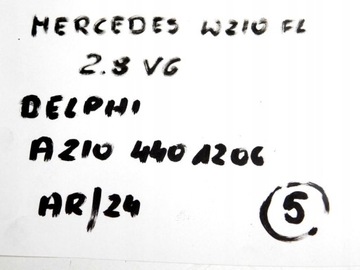 MERCEDES W210 FL
2.8 V6
DELPHI
A210 440 1206
AR/24
5